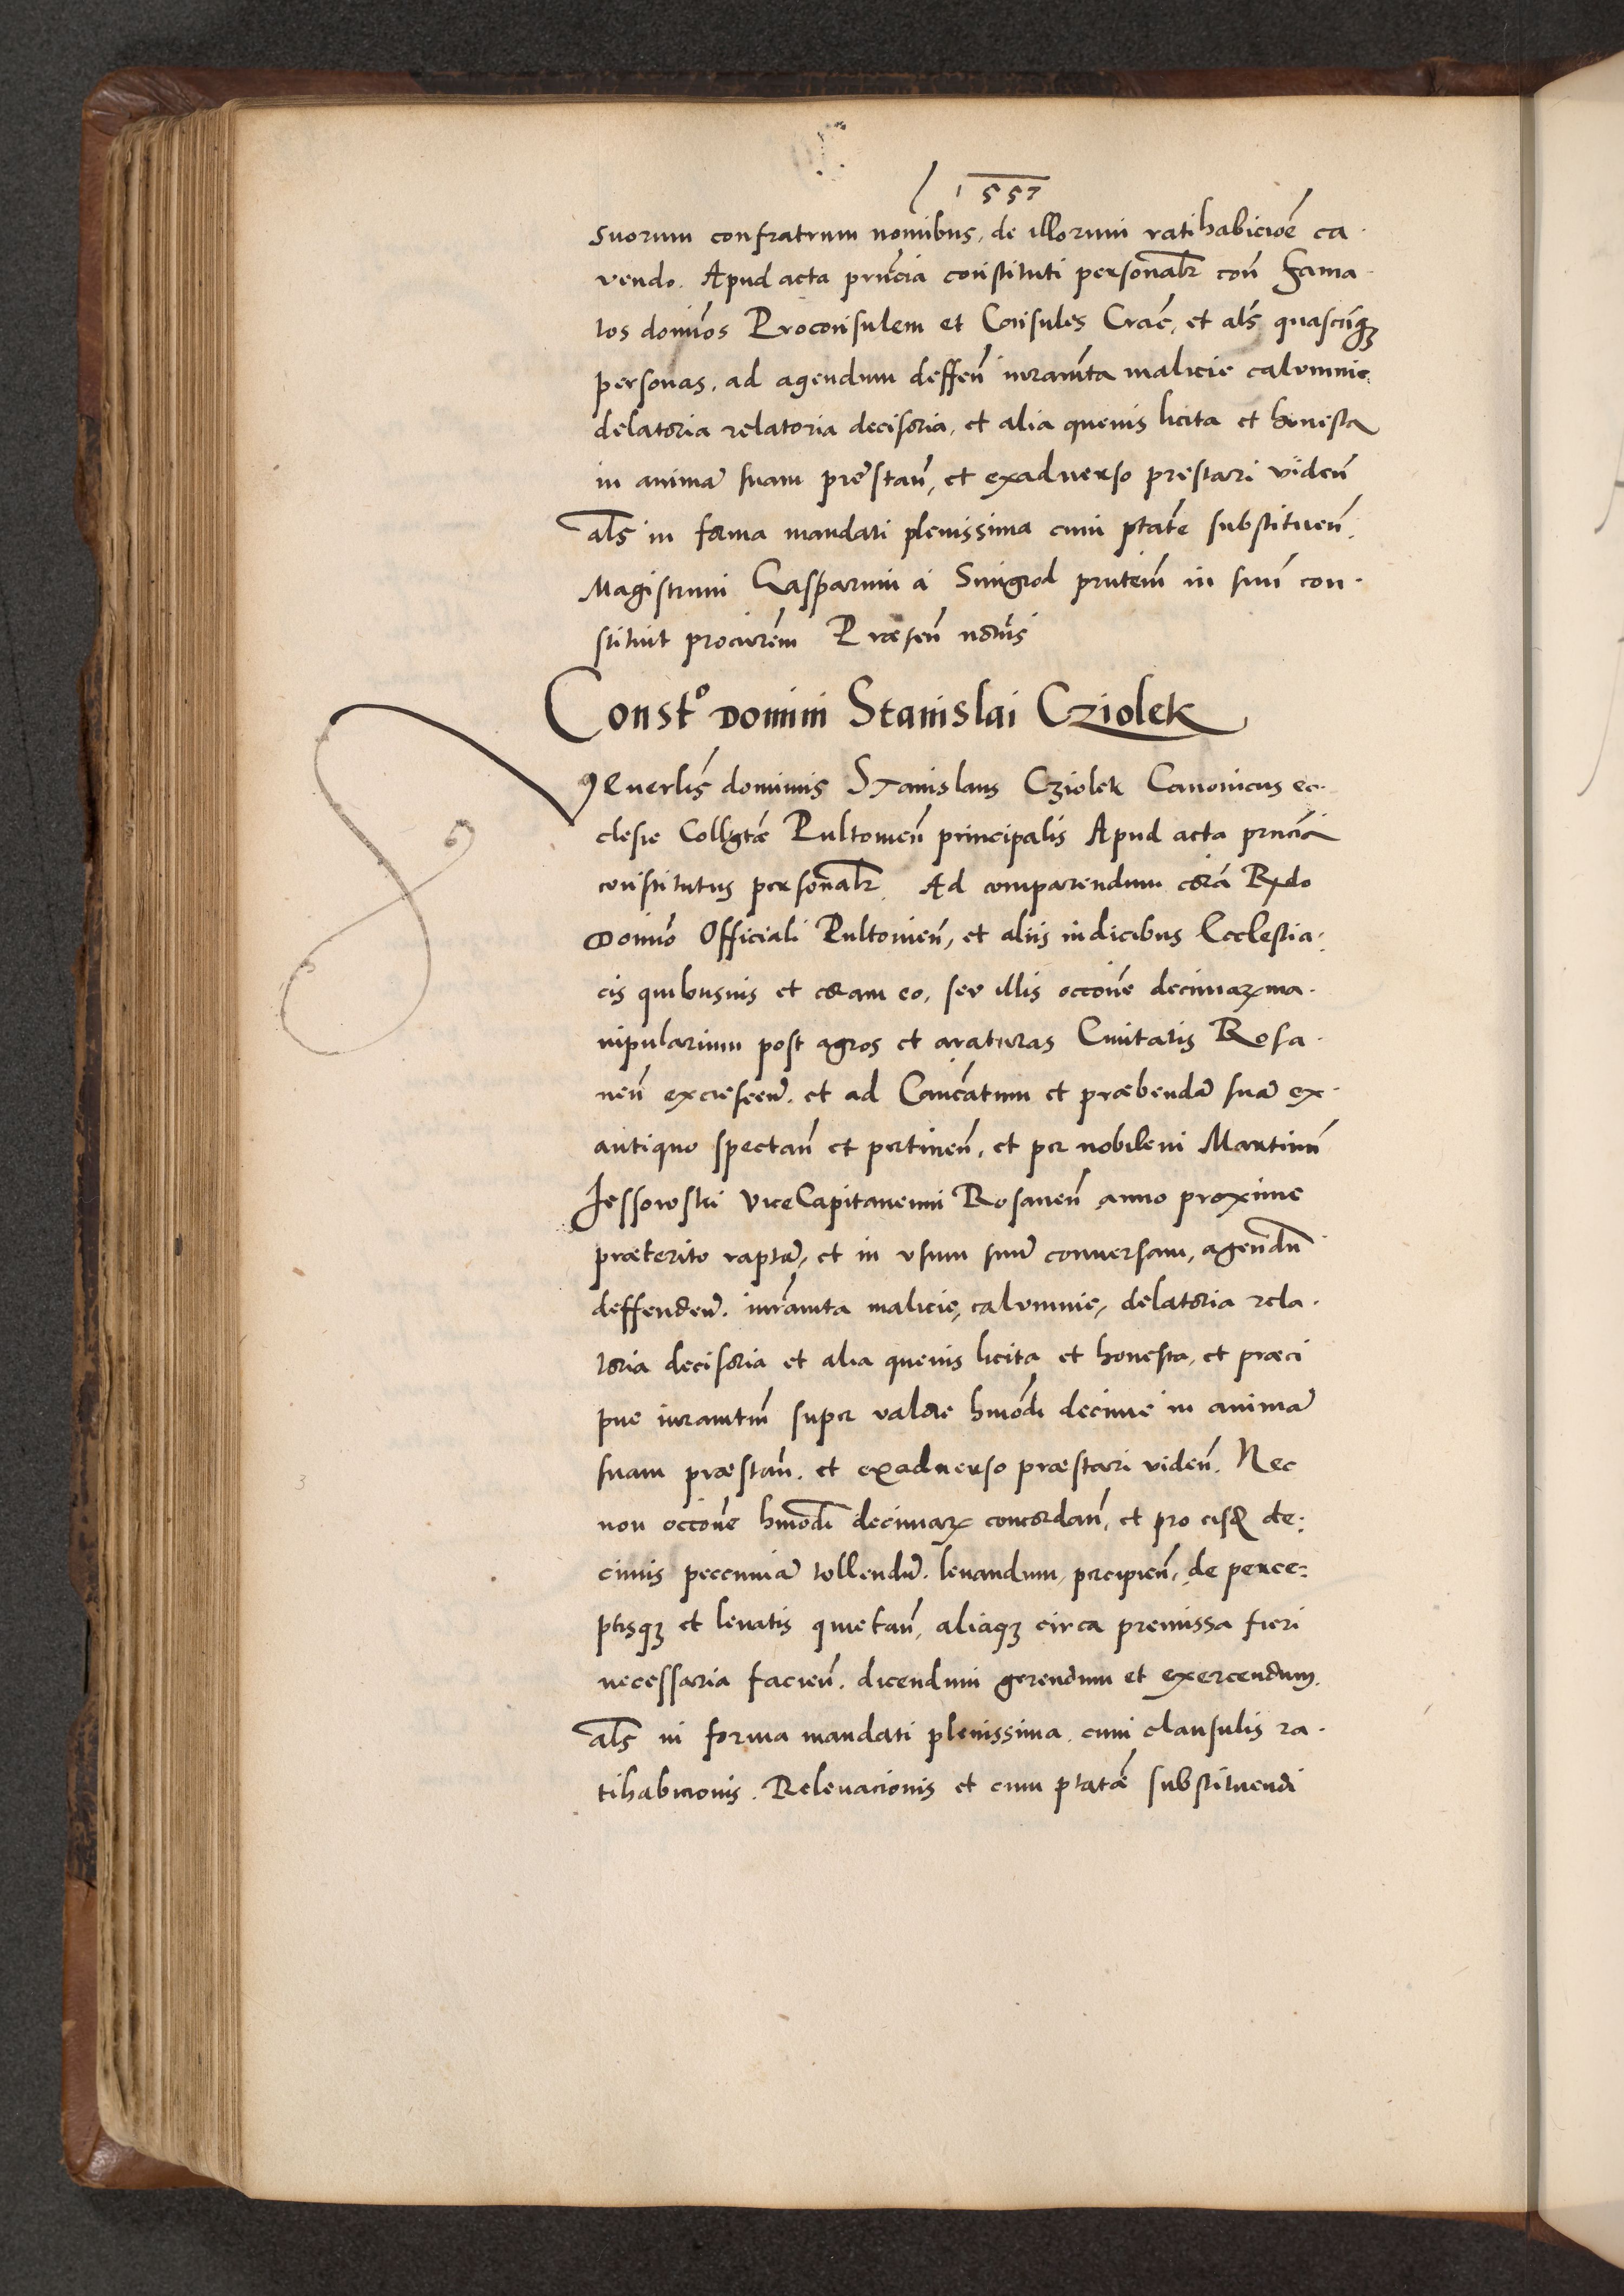 1557
suorum confratrum nomibus, de illorum ratihabicioē ca-
vendo. Apud acta prñcia constituti personalr̄ con̄ fama-
tos domōs Proconsulem et Consules Crac̄, et als̄ quascūqz
personas, ad agendum deffeñ iuramñta malicie calumnie
delatoria relatoria decisoria, et alia quevis licita et honesta
in animā suam prestañ, et exadverso prestari videñ
als̄ in forma mandati plenissima cum ptāte substitueñ.
Magistrum Gasparum a Smigrod prñtem in suū con-
stituit procurem̄ Præseñ nots̄
Const.o Domini Stanislai Cziolek
Venerlis̄ dominus Stanislaus Cziolek Canonicus ec-
clesie Collgtæ Pultovieñ principalis Apud acta prñcia
constitutus personalr̄. Ad comparendum corā Rndo
Domno Officiali Pultovieñ, et aliis iudicibus Ecclesia-
cis quibusvis et coram eo, seu illis occoñe decimarum ma-
nipularium post agros et araturas Civitatis Rosa-
neñ excrescen̄. et ad Canc̄atum et præbendā suā ex-
antiquo spectañ et pertineñ, et per nobilem Martinū
Jessowski ViceCapitaneum Rosaneñ anno proxime
præterito raptā, et in vsum suū conversam, agendū
deffendeñ. iurāmta malicie, calumnie, delatoria rela-
toria decisoria et alia quevis licita et honesta, et præci
pue iuramtm̄ super valore hmōdi decime in animā
suam præstañ. et exadverso præstari videñ. Nec
non occoñe hmōdi decimarum concordañ, et pro eisd de-
cimis pecuniā tollendū. levandum, percipieñ, de perce-
ptisqz et levatis quietañ, aliaqz circa premissa fieri
necessaria facieñ. dicendum gerendum et exercendum.
als̄ in forma mandati plenissima. cum clausulis ra-
tihabicionis. Relevacionis et cum ptatæ substituendi